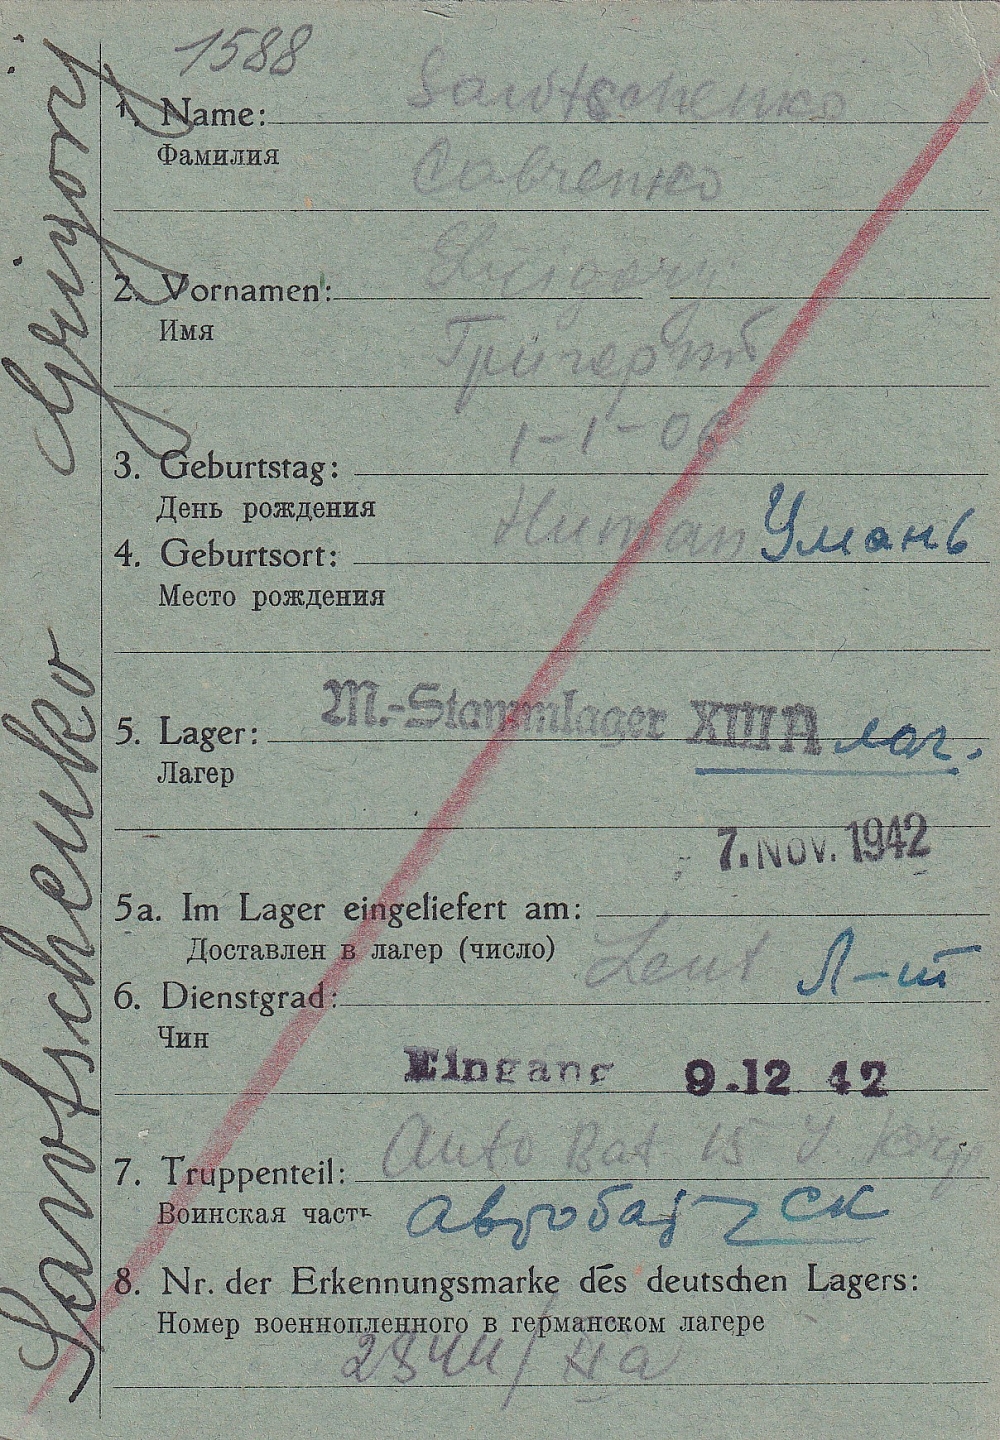 Sawtschenko Grigory
1588
1. Name: Sawtschenko
Фамилия Савченко
2. Vornamen: Grigory
Имя Григорий
3. Geburtstag: 1-1-06
День рождения
4. Geburtsort: Human Умань
Место рождения
5. Lager: M.-Stammlager XIII A лаг.
Лагер
7. Nov. 1942
5a. Im Lager eingeliefert am:
Доставлен в лагер (число)
6. Dienstgrad: Leut Л-т
Чин
Eingang 9.12 42
7. Truppenteil: Auto Bat 15
Воинская часть автобат СК
8. Nr. der Erkennungsmarke des deutschen Lagers:
Номер военнопленного в германском лагере